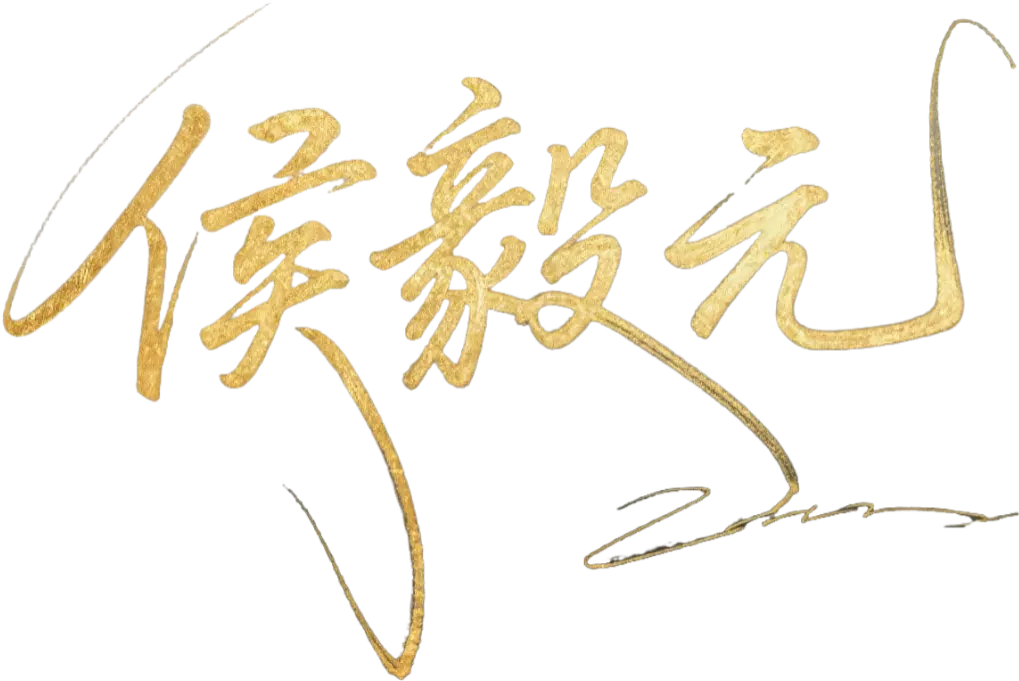 侯毅元